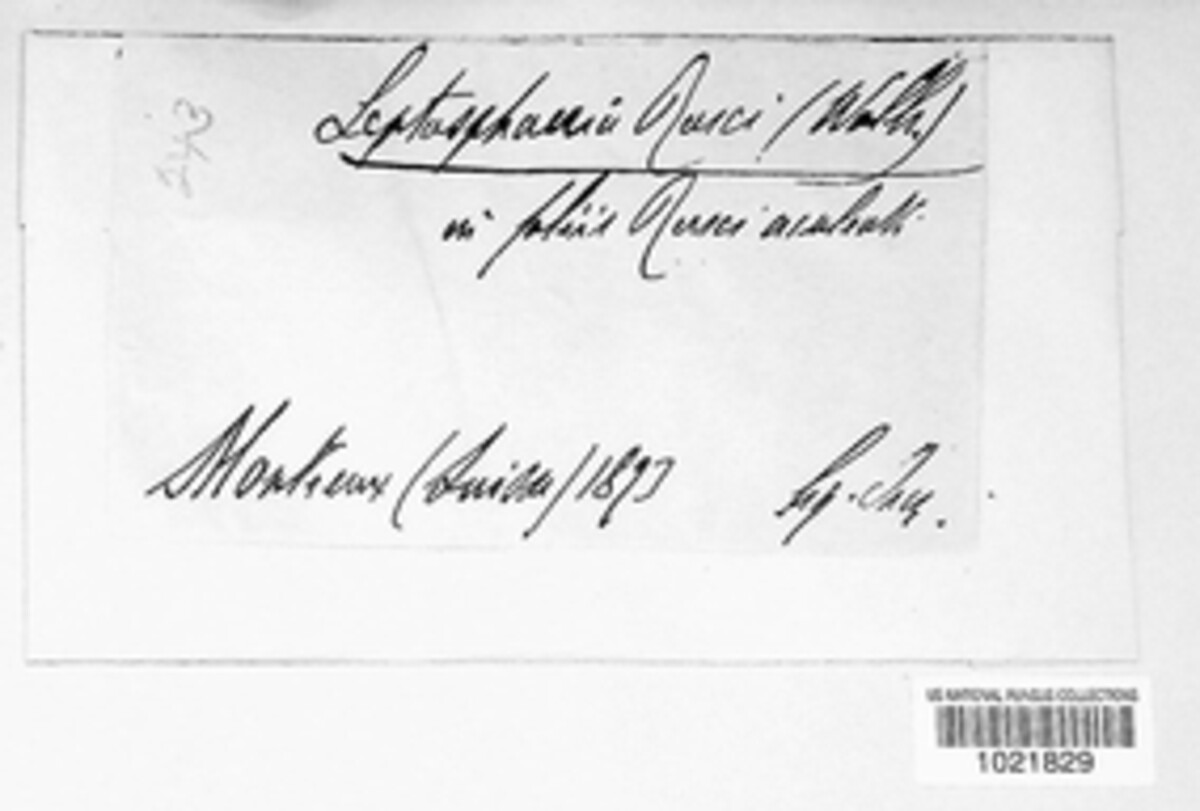 243
Leptosphaeria Rusci (Wallr.)
in foliis Rusci aculeati
Montreux (Suisse) 1893
leg.
US NATIONAL FUNGUS COLLECTIONS
1021829